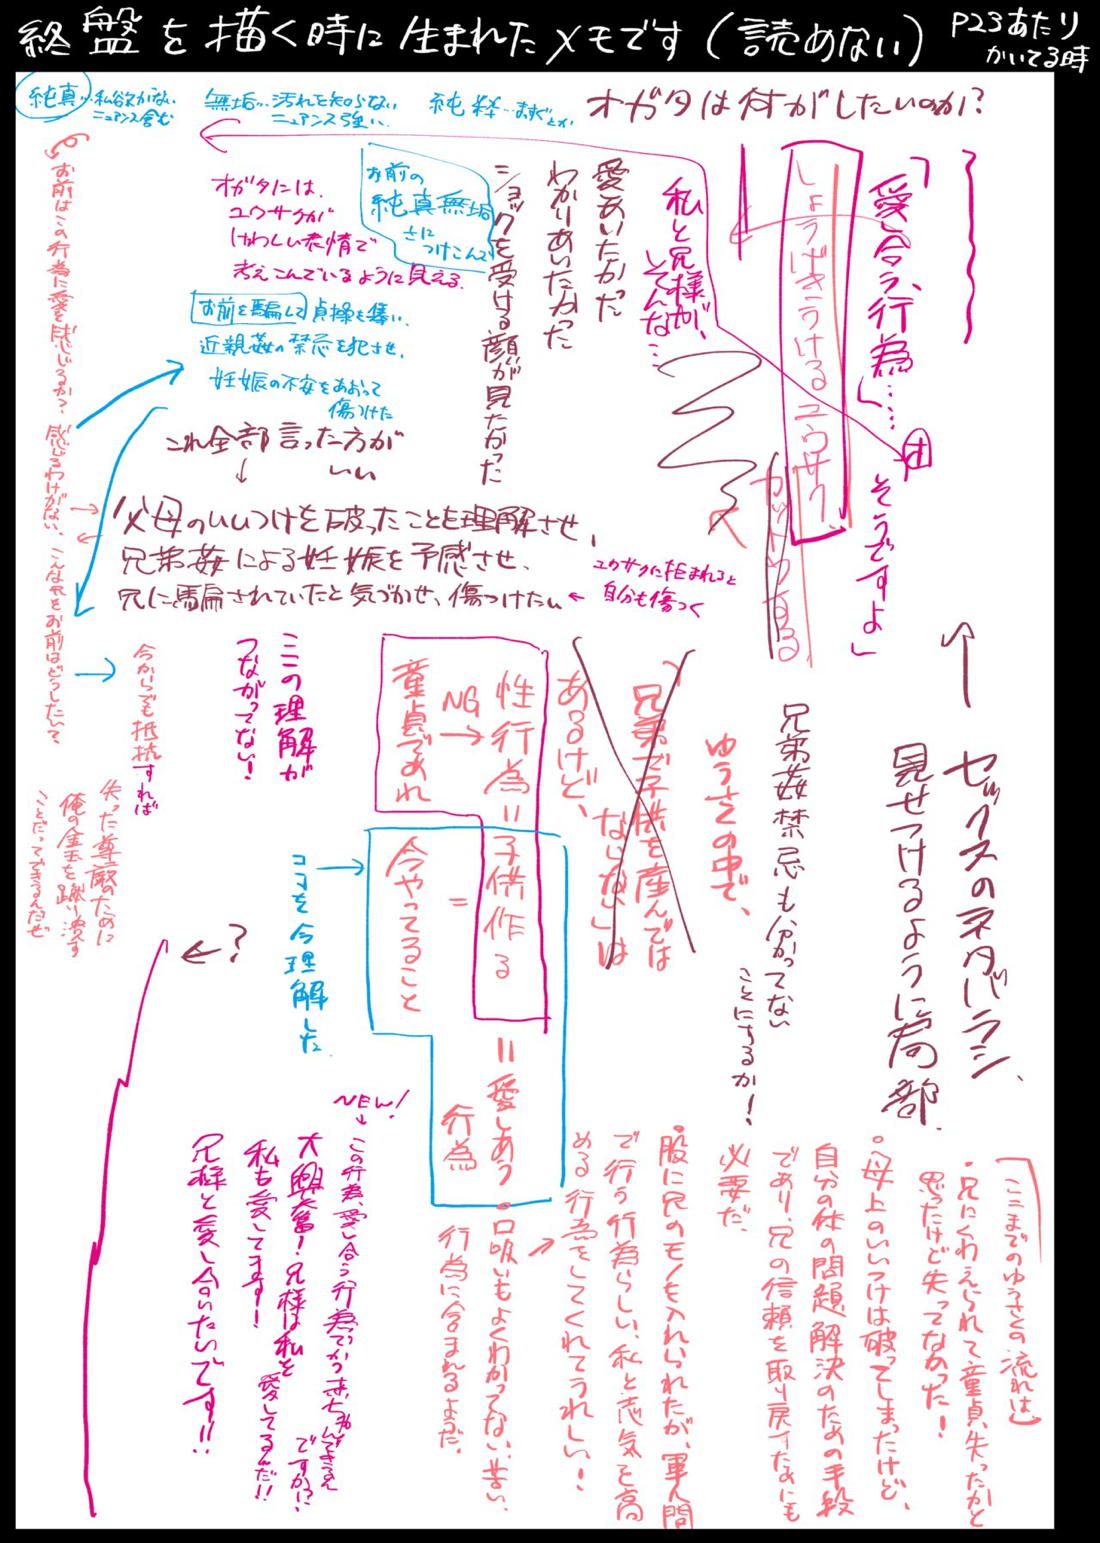 終盤を描く時に生まれたメモです(読めない)
P23あたり
かいてる時
純真…私欲がない
ニュアンス含む
無垢…汚れを知らない
ニュアンス強い
純粋…まっすぐとか
オガタは何がしたいのか?
「愛し合う、行為……」
そうですよ」
しょうげきうけるユウサク
カットowする
私と兄様が、
そんな…
愛しあいたかった
わかりあいたかった
ショックを受ける顔が見たかった
お前の
純真無垢
さに
つけこんで
オガタには、
ユウサクが
けわしい表情で
考えこんでいるように見える
お前を騙して貞操を奪い、
近親姦の禁忌を犯させ、
妊娠の不安をあおって
傷つけた
これ全部言った方が
いい
↓
父母のいいつけを破ったことを理解させ、
兄弟姦による妊娠を予感させ、
兄に騙されていたと気づかせ、傷つけたい
← ユウサクに拒まれると
自分も傷つく
お前はこの行為に愛を感じるか?感じるわけがない、こんな兄をお前はどうしたいて
→ 今からでも抵抗すれば
失った尊厳のために
俺の金玉を蹴り潰す
ことだってできるんだぜ
セックスのネタバラシ、
見せつけるように局部
兄弟姦禁忌も分かってない
ことにするか!
ゆうさの中で、
「兄弟で子供を産んでは
ならない」は
あるけど、
性行為=子供作る
NG→
童貞であれ
=
今やってること
=愛しあう
行為
ここの理解が
つながってない!
ココを今理解した
←?
(ここまでのゆうさくの流れは)
・兄にくわえられて童貞失ったかと
思ったけど失ってなかった!
・母上のいいつけは破ってしまったけど、
自分の体の問題解決のための手段
であり、兄の信頼を取り戻すためにも
必要だ。
・股に兄のモノを入れられたが、軍人間
で行う行為らしい、私と志気を高
める行為をしてくれてうれしい!
・口吸いもよくわかってない、苦い、
行為に含まれるようだ。
NEW!
↓
この行為、愛し合う行為でかつ赤ちゃんできるん
ですか!?
大興奮!兄様は私を
愛してるんだ!!
私も愛してます!
兄様と愛し合いたいです!!